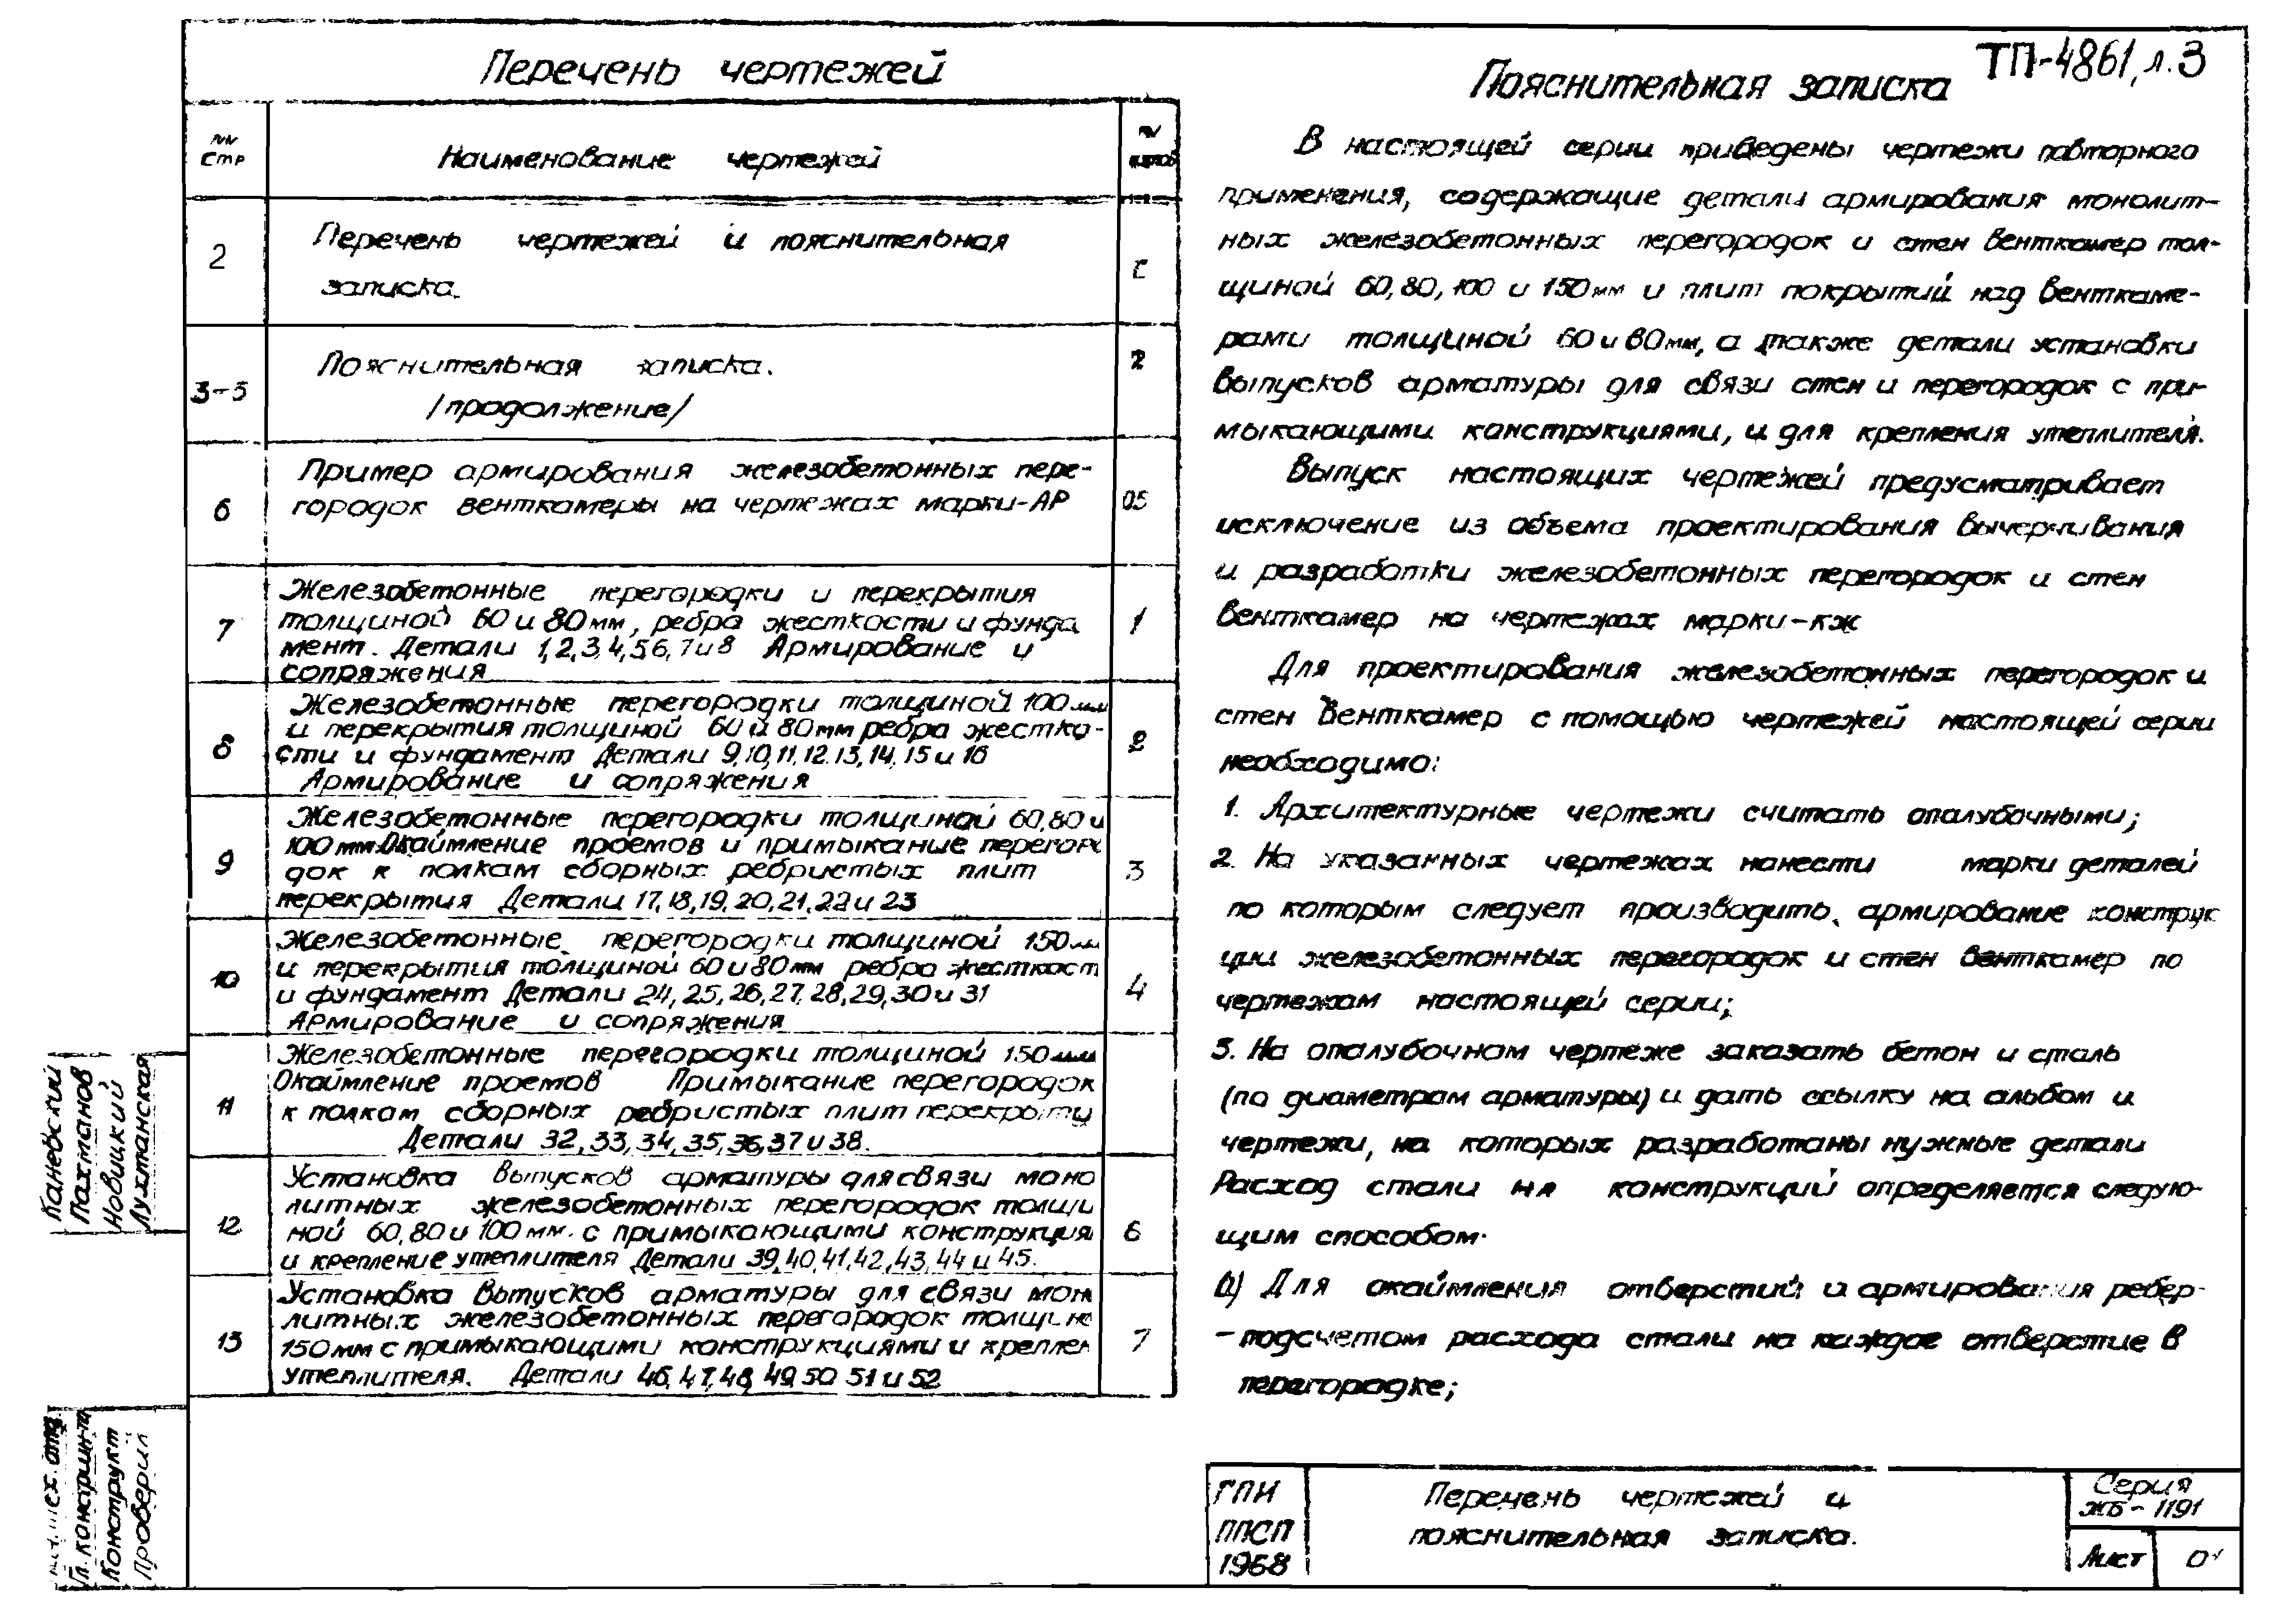 ТП-4861, л.3
Перечень чертежей
Стр
Наименование чертежей
2
Перечень чертежей и пояснительная
записка.
3-5
Пояснительная записка.
/продолжение/
2
6
Пример армирования железобетонных пере-
городок венткамеры на чертежах марки-АР
05
7
Железобетонные перегородки и перекрытия
толщиной 60 и 80мм, ребра жесткости и фунда
мент. Детали 1,2,3,4,5,6,7 и 8 Армирование и
сопряжения
1
8
Железобетонные перегородки толщиной 100мм
и перекрытия толщиной 60 и 80мм ребра жестко-
сти и фундамент Детали 9,10,11,12,13,14,15 и 16
Армирование и сопряжения
2
9
Железобетонные перегородки толщиной 60,80 и
100мм Окаймление проемов и примыкание перегоро
док к полкам сборных ребристых плит
перекрытия Детали 17,18,19,20,21,22 и 23
3
10
Железобетонные перегородки толщиной 150мм
и перекрытия толщиной 60 и 80мм ребра жесткост
и фундамент Детали 24,25,26,27,28,29,30 и 31
Армирование и сопряжения
4
11
Железобетонные перегородки толщиной 150мм
Окаймление проемов Примыкание перегородок
к полкам сборных ребристых плит перекрыти
Детали 32,33,34,35,36,37 и 38.
12
Установка выпусков арматуры для связи моно
литных железобетонных перегородок толщи
ной 60,80 и 100мм. с примыкающими конструкция
и крепление утеплителя Детали 39,40,41,42,43,44 и 45.
6
13
Установка выпусков арматуры для связи мон
литных железобетонных перегородок толщин
150мм с примыкающими конструкциями и креплен
утеплителя. Детали 46,47,48,49,50 51 и 52
7
Пояснительная записка
В настоящей серии приведены чертежи повторного
применения, содержащие детали армирования монолит-
ных железобетонных перегородок и стен венткамер тол-
щиной 60,80,100 и 150мм и плит покрытий над венткаме-
рами толщиной 60 и 80мм, а также детали установки
выпусков арматуры для связи стен и перегородок с при-
мыкающими конструкциями, и для крепления утеплителя.
Выпуск настоящих чертежей предусматривает
исключение из объема проектирования вычерчивания
и разработки железобетонных перегородок и стен
венткамер на чертежах марки-кж
Для проектирования железобетонных перегородок и
стен венткамер с помощью чертежей настоящей серии
необходимо:
1. Архитектурные чертежи считать опалубочными;
2. На указанных чертежах нанести марки деталей
по которым следует производить армирование конструк
ции железобетонных перегородок и стен венткамер по
чертежам настоящей серии;
3. На опалубочном чертеже заказать бетон и сталь
(по диаметрам арматуры) и дать ссылку на альбом и
чертежи, на которых разработаны нужные детали
Расход стали на конструкций определяется следую-
щим способом.
а) Для окаймления отверстий и армирования ребер-
-подсчетом расхода стали на каждое отверстие в
перегородке;
Каневский
Пахманов
Новицкий
Лухтанская
Гл. констр
Конструкт
Проверил
ГПИ
ППСП
1968
Перечень чертежей и
пояснительная записка.
Серия
ЖБ-1191
Лист
01